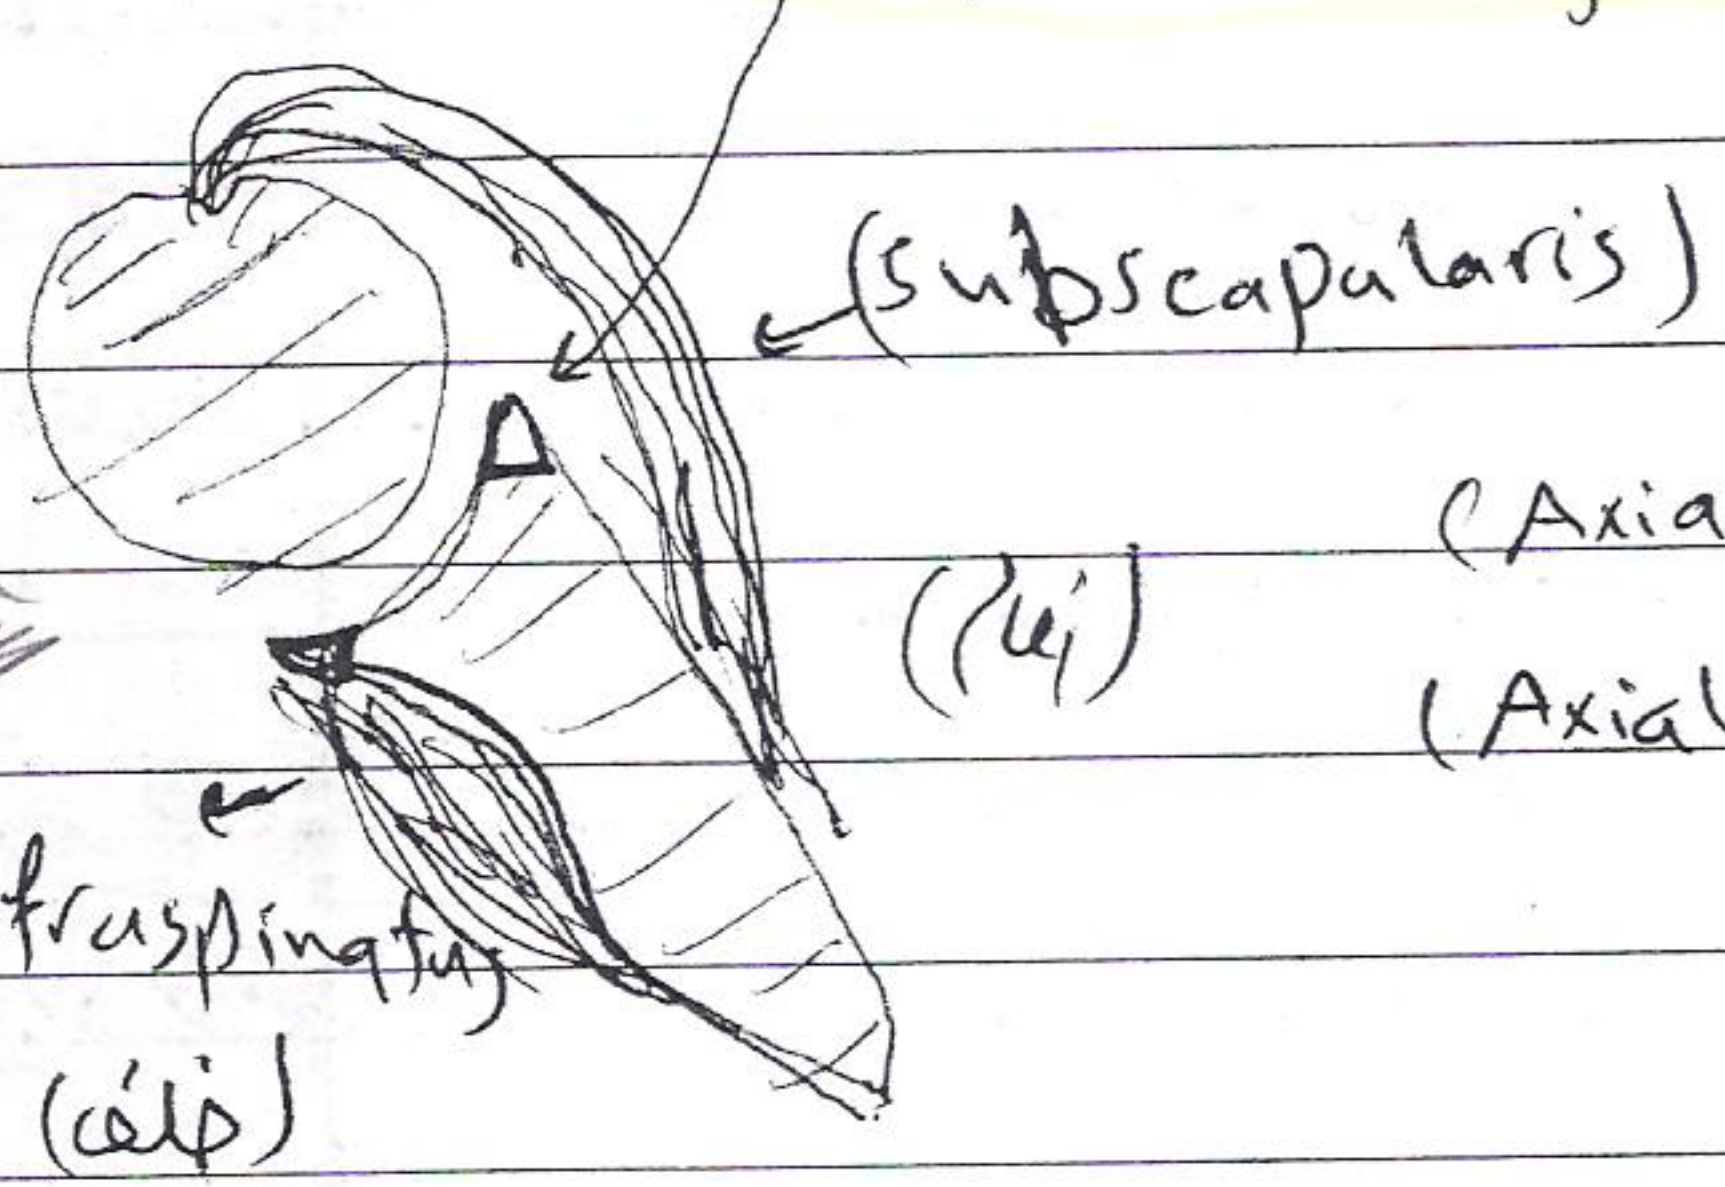 (subscapularis)
(Axia
(Axial
fraspinatus